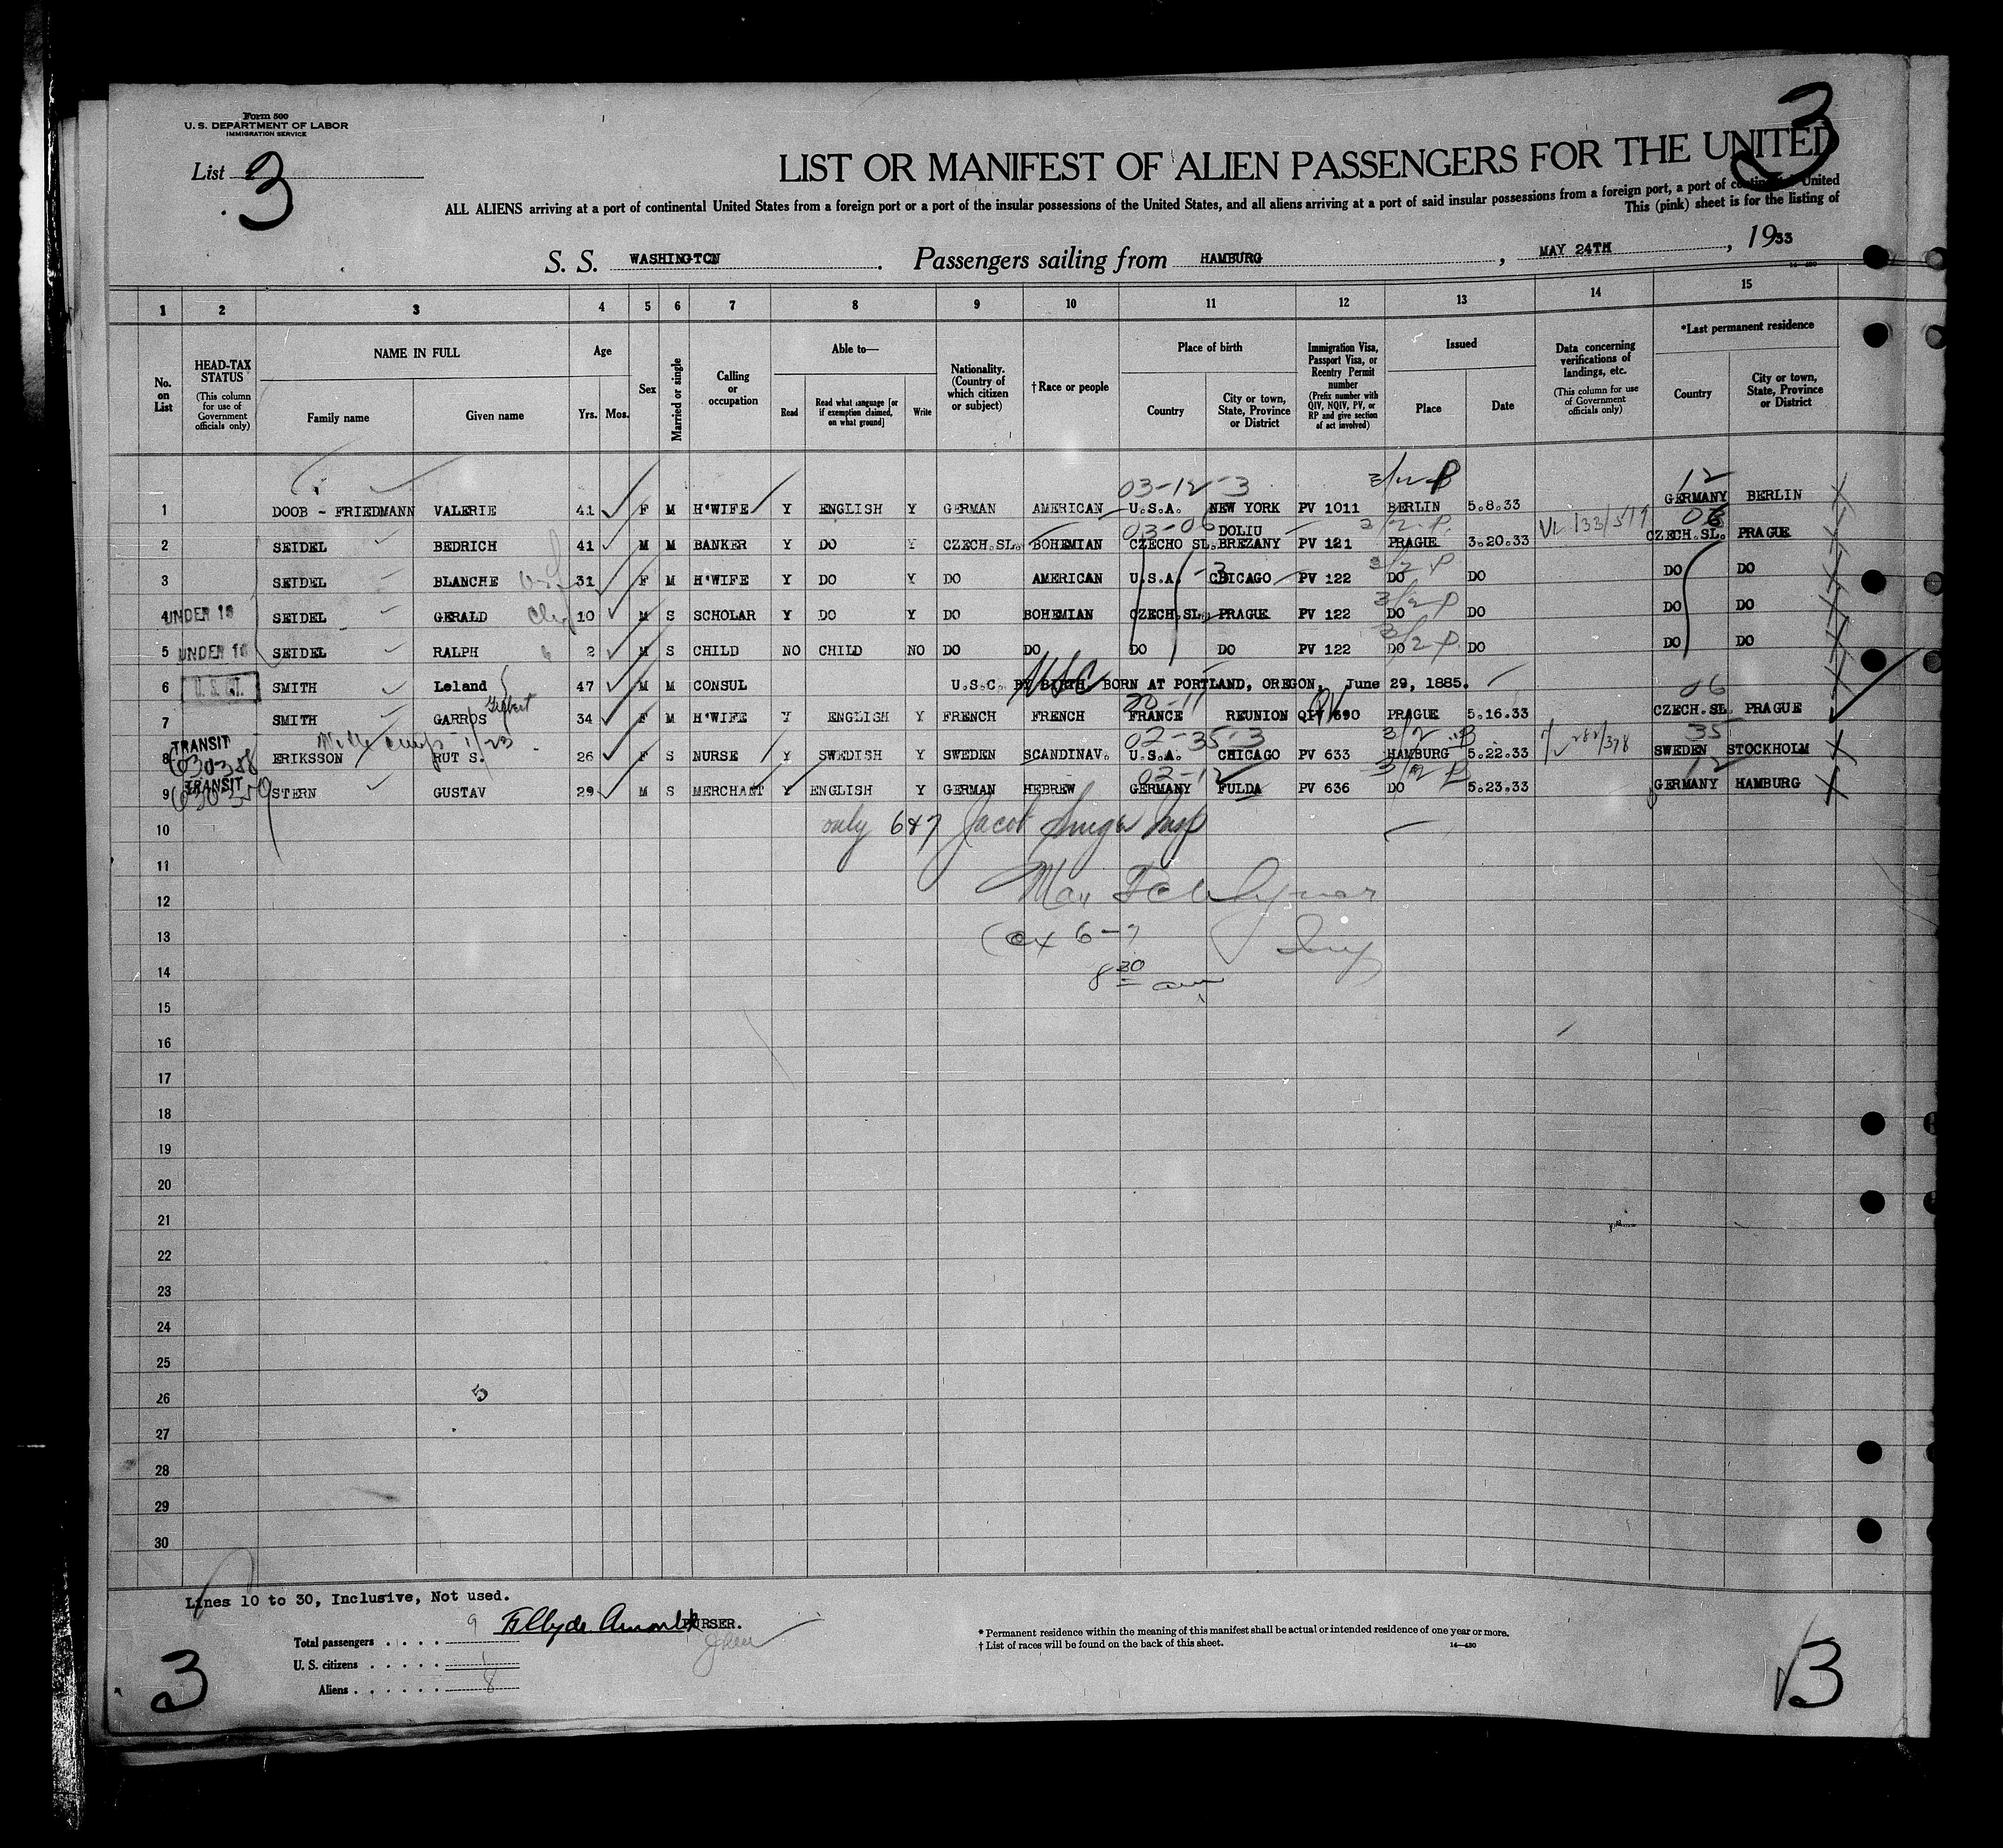 Form 500
U. S. DEPARTMENT OF LABOR
IMMIGRATION SERVICE
3
List 3
LIST OR MANIFEST OF ALIEN PASSENGERS FOR THE UNITED
ALL ALIENS arriving at a port of continental United States from a foreign port or a port of the insular possessions of the United States, and all aliens arriving at a port of said insular possessions from a foreign port, a port of continental United
This (pink) sheet is for the listing of
S. S. WASHINGTON. Passengers sailing from HAMBURG, MAY 24TH, 1933
1 2 3 4 5 6 7 8 9 10 11 12 13 14 15
No. on List
HEAD-TAX STATUS (This column for use of Government officials only)
NAME IN FULL
Family name Given name
Age
Yrs. Mos.
Sex
Married or single
Calling or occupation
Able to—
Read Read what language [or if exemption claimed, on what ground] Write
Nationality. (Country of which citizen or subject)
†Race or people
Place of birth
Country City or town, State, Province or District
Immigration Visa, Passport Visa, or Reentry Permit number (Prefix number with QIV, NQIV, PV, or RP and give section of act involved)
Issued
Place Date
Data concerning verifications of landings, etc. (This column for use of Government officials only)
*Last permanent residence
Country City or town, State, Province or District
03-12-3 3/2 P 12
1 DOOB - FRIEDMANN VALERIE 41 F M H'WIFE Y ENGLISH Y GERMAN AMERICAN U.S.A. NEW YORK PV 1011 BERLIN 5.8.33 GERMANY BERLIN
03-06 3/2 P. 06
2 SEIDEL BEDRICH 41 M M BANKER Y DO Y CZECH.SL. BOHEMIAN CZECHO SL. DOLIU BREZANY PV 121 PRAGUE 3.20.33 CZECH.SL. PRAGUE
3 SEIDEL BLANCHE 31 F M H'WIFE Y DO Y DO AMERICAN U.S.A. -3 CHICAGO PV 122 DO 3/2 P DO DO DO
4 UNDER 16 SEIDEL GERALD 10 M S SCHOLAR Y DO Y DO BOHEMIAN CZECH.SL. PRAGUE PV 122 DO 3/2 P DO DO DO
5 UNDER 16 SEIDEL RALPH 2 M S CHILD NO CHILD NO DO DO DO DO PV 122 DO 3/2 P. DO DO DO
6 U.S.CIT. SMITH Leland 47 M M CONSUL U.S.C. BY BIRTH. BORN AT PORTLAND, OREGON, June 29, 1885. USC
06
7 SMITH GARROS 34 F M H'WIFE Y ENGLISH Y FRENCH FRENCH FRANCE REUNION 690 PRAGUE 5.16.33 CZECH.SL PRAGUE
02-35-3 3/2 P 35
8 TRANSIT 630358 ERIKSSON RUT S. 26 F S NURSE Y SWEDISH Y SWEDEN SCANDINAV. U.S.A. CHICAGO PV 633 HAMBURG 5.22.33 SWEDEN STOCKHOLM
02-12 3/2 P 12
9 TRANSIT 630359 STERN GUSTAV 29 M S MERCHANT Y ENGLISH Y GERMAN HEBREW GERMANY FULDA PV 636 DO 5.23.33 GERMANY HAMBURG
10 only 6&7 Jacob Insp
11
12
13 (ex 6-7
14 8 30 am
15
16
17
18
19
20
21
22
23
24
25
26 5
27
28
29
30
Lines 10 to 30, Inclusive, Not used.
PURSER.
Total passengers 9
U. S. citizens 1
Aliens 8
* Permanent residence within the meaning of this manifest shall be actual or intended residence of one year or more.
† List of races will be found on the back of this sheet.
14—430
3
3